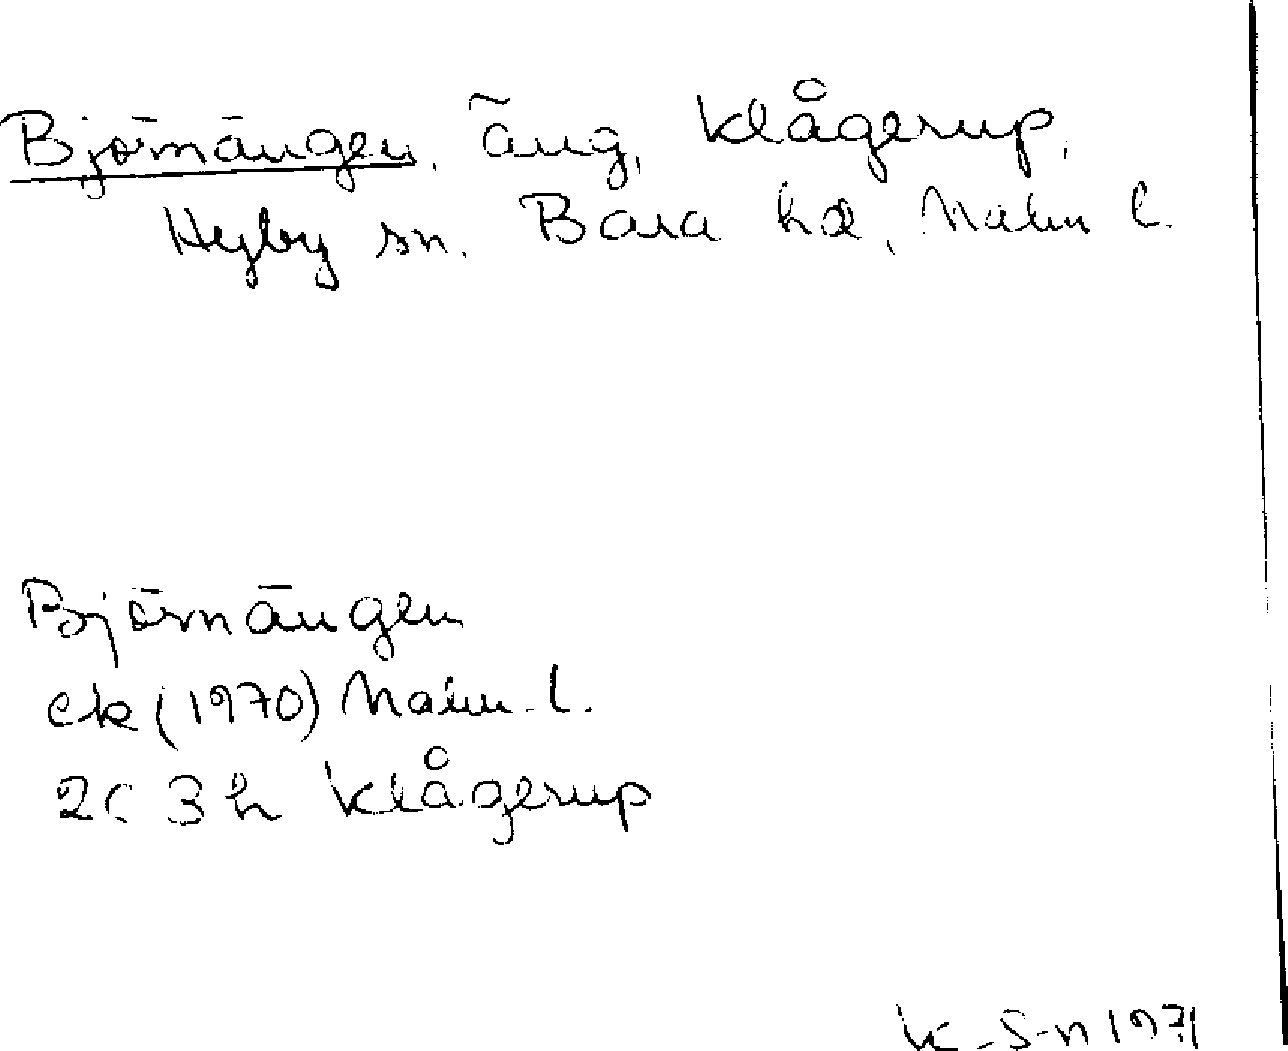 Björnängen, äng, Klågerup,
Hyby sn. Bara hd, Malm l.
Björnängen
ek (1970) Malm. l.
2C 3h Klågerup
K-S-n 1971